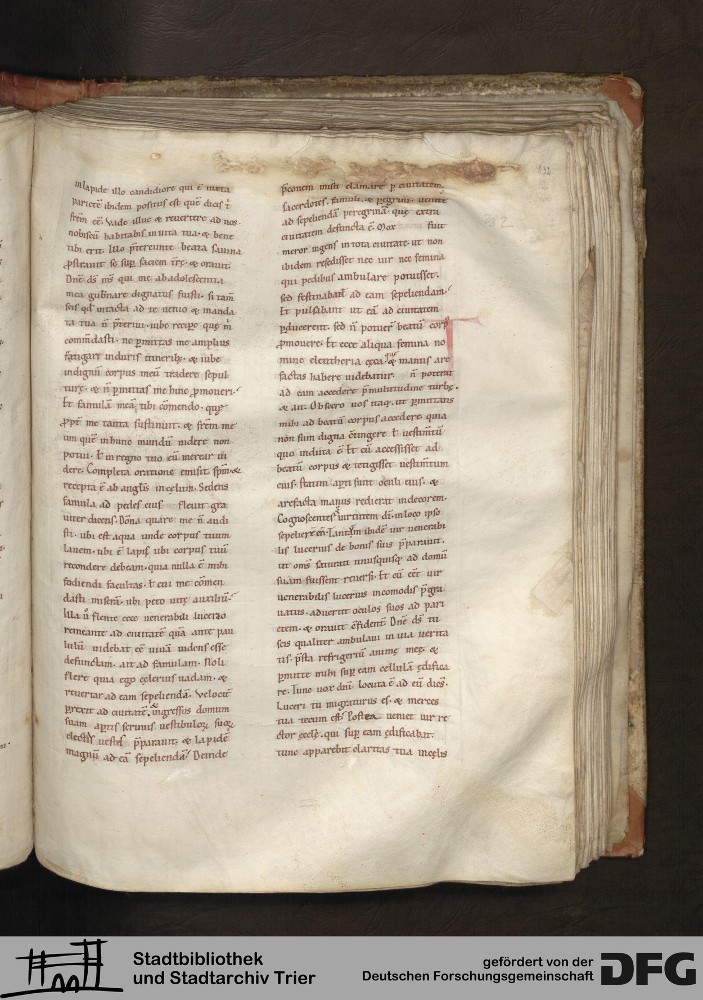 in lapide illo candidiore qui ē iuxta
parietē ibidem positus est quē dicis
frem eē. Vade illuc & reuertere ad nos.
nobiscū habitabis in uita tua. & bene
tibi erit. Illo p̄tereunte beata sauina
ꝓstrauit se suꝑ faciem & orauit.
Dnē ds ms̄ qui me ab adolescentia
mea gub̄nare dignatus fuisti. si tam̄
scis qd̄ intacta ad te uenio & manda
ta tua n̄ p̄teriui. iube recipe quę m̄
comm̄dasti. ne ꝑmittas me amplius
fatigari in duris itinerib; & iube
indignū corpus meū tradere sepul
turę. & n̄ ꝑmittas me hinc ꝓmoueri.
Et famulā meā tibi cōmendo. quę
ꝓpt̄ me tanta sustinuit. & frēm me
um quē in hunc mundū uidere non
potui. ł in regno tuo eū merear ui
dere. Completa oratione emisit spm̄. &
recepta ē ab anglis in cęlum. Sedens
famula ad pedes eius fleuit gra
uiter dicens. Dōna quare me n̄ audi
sti. ubi est aqua unde corpus tuum
lauem. ubi ē lapis ubi corpus tuū
recondere debeam. quia nulla ē mihi
fodiendi facultas. ł cui me cōmen
dasti miserā. ubi peto uitę auxiliū.
Illa u̅ flente ecce uenerabili lucerio
remeante ad ciuitatē quā ante pau
lulū uidebat eē uiuā uidens esse
defunctam. ait ad famulam. Noli
flere quia ego celerius uadam. &
reuertar ad eam sepeliendā. Velocit̄
ꝑrexit ad ciuitatē. ingressus domum
suam aꝑtis scriniis uestibulorꝝ suorꝝ
electis uestes p̄parauit. & lapidē
magnū ad eā sepeliendā. Deinde
p̄conem misit clamare ꝑ ciuitatem.
sacerdotes. famuli. & pegrini. uenite
ad sepeliendā peregrinā quę extra
ciuitatem defuncta ē. Mox fuit
meror ingens in tota ciuitate. ut non
ibidem resedisset nec uir nec femina
qui pedibus ambulare potuisset.
sed festinabant ad eam sepeliendam.
Et pulsabant ut eā ad ciuitatem
ꝑducerent. sed n̄ potuer̄ beatū corꝑ
ꝓmouere. Et ecce aliqua femina no
mine eleutheria cęca. quę & manus are
factas habere uidebatur. n̄ potuit
ad eam accedere p̄ multitudine turbę.
& ait. Obsecro uos itaq. ut ꝑmittatis
mihi ad beatū corpus accedere. quia
non sum digna c̄tingere ł uestim̄tū
quo induta ē. Et cū accessisset ad
beatū corpus & tetigisset uestim̄tum
eius. statim aꝑti sunt oculi eius. &
arefacta manus redierat in decorem.
Cognoscentes uirtutem dī. in loco ipso
sepelierē eā. Tantum ibidē uir uenerabi
lis lucerius de bonis suis p̄parauit.
ut oms̄ saturati unusquisq; ad domū
suam fuissent reuersi. Et cū eēt uir
uenerabilis lucerius incomodis p̄gra
uatus. aduertit oculos suos ad pari
etem. & orauit c̄fidenter. Dnē ds̄ tu
scis qualiter ambulaui in uia uerita
tis p̄sta refrigeriū animę meę. &
ꝑmitte mihi suꝑ eam cellulā ędifica
re. Tunc uox dnī. locuta ē ad eū dicēs.
Luceri tu migraturus es. & merces
tua tecum est. Postea ueniet uir re
ctor ecclę. qui suꝑ eam ędificabit.
tunc apparebit claritas tua in cęlis
Stadtbibliothek
und Stadtarchiv Trier
gefördert von der
Deutschen Forschungsgemeinschaft
DFG